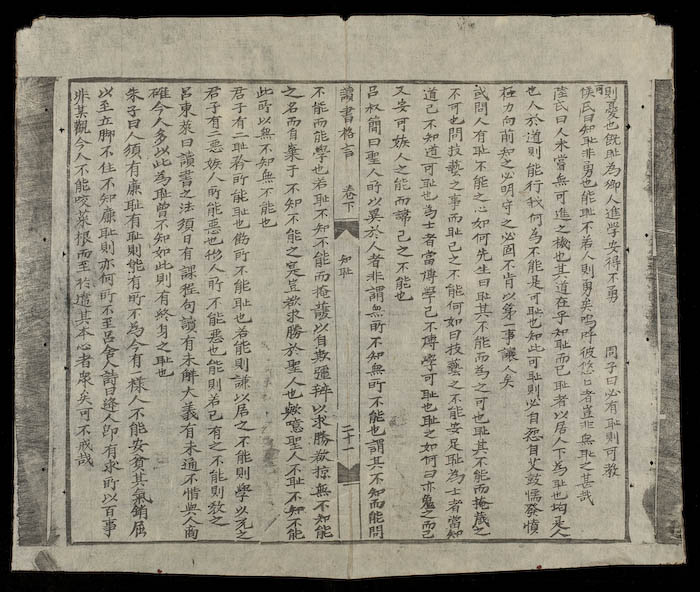 則憂也既恥為鄉人進學安得不勇 周子曰必有恥則可教
侯氏曰知恥非勇也能恥不若人則勇矣嗚呼彼悠悠者豈非無恥之甚哉
陸氏曰人未嘗無可進之機也其道在乎知恥而已恥者以居人下為恥也均是人
也人於道則能行我何為不能是可恥也知此可恥則必自怨自艾鼓懦發憤
極力向前知之必明守之必固不肯以第一事讓人矣
或問人有恥不能之心如何先生曰恥其不能而為之可也恥其不能而掩蔵之
不可也問技藝之事而恥己之不能何如曰技藝之不能安足恥為士者當知
道己不知道可恥也為士者當博學己不博學可恥也恥之如何曰亦勉之而已
又安可嫉人之能而諱己之不能也
呂叔簡曰聖人所以異於人者非謂無所不知無所不能也謂其不知而能問
讀書格言 卷下 知恥 二十一
不能而能學也若恥不知不能而掩護以自欺彊辯以求勝欲掠無不知能
之名而自棄于不知不能之寔豈欲求勝於聖人也歟噫聖人不恥不知不能
此所以無不知無不能也
君子有二恥矜所能恥也飾所不能恥也若能則謙以居之不能則學以充之
君子有二惡嫉人所能惡也形人所不能惡也能則若己有之不能則教之
呂東萊曰讀書之法須日有課程句讀有未解大義有未通不惜與人商
確今人多以此為恥曾不知如此則有終身之恥也
朱子曰人須有廉恥有恥則能有所不為今有一樣人不能安貧其氣銷屈
以至立腳不住不知廉恥則亦何所不至呂舍人詩曰逢人即有求所以百事
非某觀今人不能咬菜根而至於違其本心者衆矣可不戒哉